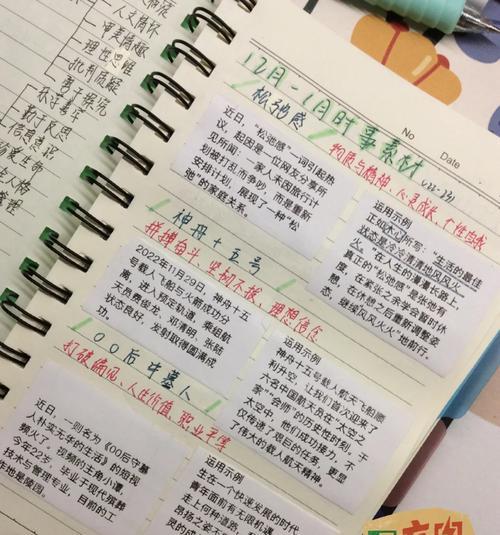 人文情怀
审美情趣
理性思维
批判质疑
勇于探究
乐学善学
勤于反思
信息意识
珍爱生命
12月-1月时事素材 (22-23)
No
Date
松弛感
物质与精神、心灵成长、个性自我
近日，“松弛感”一词引起热
议，起因是一位网友分享所
见所闻：一家人未因旅行计
划被打乱而争吵，而是重新
安排计划，展现了一种“松
弛”的家庭关系。
运用示例
正如木心所写：“生活的最佳
状态是冷冷清清地风风火
火。”在人生的漫漫长路上，
真正的“松弛感”是张弛有
度，在紧张之余会暂时休
息，在休憩之后重新调整姿
态，继续风风火火地前行。
神舟十五号
拼搏奋斗、坚韧不拔、理想信念
2022年11月29日，神舟十五
号载人飞船与火箭成功分
离，进入预定轨道，乘组航
天员费俊龙、邓清明、张陆
状态良好，发射取得圆满成
功。
运用示例
神舟十五号载人航天飞船顺
利升空，让我们首次迎来了
六名中国航天员在“太空之
家”会师的历史性时刻，于
太空中，他们成功接力，不
仅传递了艰巨的任务，更显
了伟大的载人航天精神。
00后守墓人
打破偏见、人生价值、职业平等
近日，一则名为《00后守墓
人朴实无华的生活》的短视
频火了，视频的主角小谭，
今年22岁，毕业于现代殡葬
技术与管理专业，目前的工
作地是陵园。
运用示例
生在一个快速发展的时代
青年面前有无限机遇，
走上何种道路，
昂扬之姿
灵的成